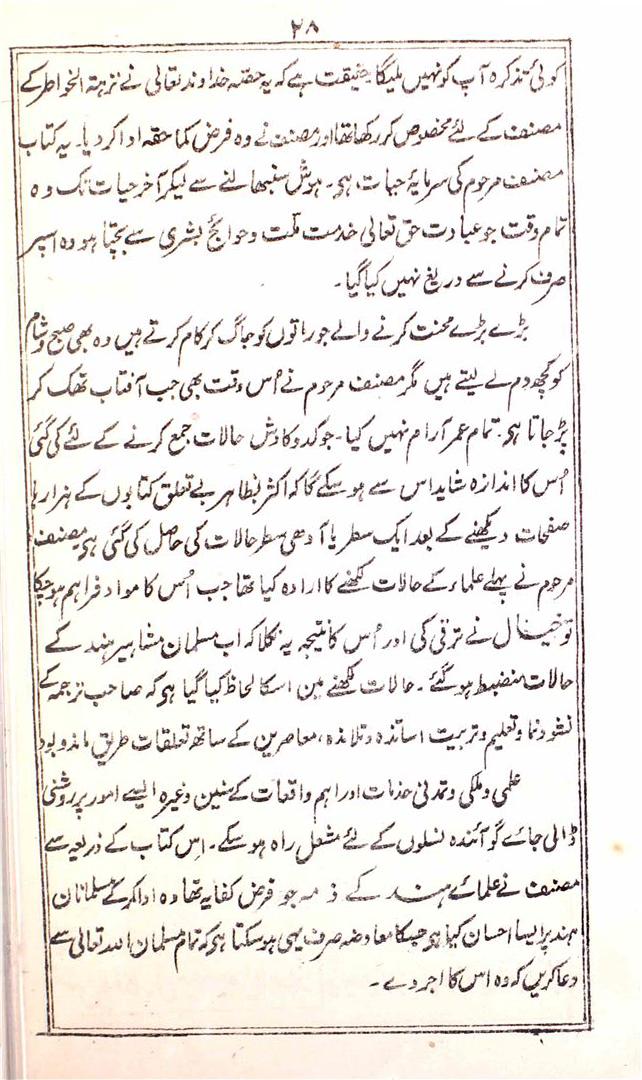 ۲۸
کوئی تذکرہ آپ کو نہیں ملیگا حقیقت ہے کہ یہ حصہ خداوند تعالیٰ نے نزہتہ الخواطر کے
مصنف کے لئے مخصوص کر رکھا تھا اور مصنف نے وہ فرض کما حقہ ادا کر دیا۔ یہ کتاب
مصنف مرحوم کی سرمایۂ حیات، ہی۔ ہوش سنبھالنے سے لیکر آخر حیات تک وہ
تمام وقت جو عبادت حق تعالیٰ خدمت ملت و حوائج بشری سے بچتا ہو وہ اسپر
صرف کرنے سے دریغ نہیں کیا گیا۔
بڑے بڑے محنت کرنے والے جو راتوں کو جاگ کر کام کرتے ہیں وہ بھی صبح و شام
کو کچھ دم لے لیتے ہیں مگر مصنف مرحوم نے اُس وقت بھی جب آفتاب تھک کر
پڑ جاتا ہی، تمام عمر آرام نہیں کیا۔ جو کد و کاوش حالات جمع کرنے کے لئے کی گئی
اُس کا اندازہ شاید اس سے ہو سکے گا کہ اکثر بظاہر بے تعلق کتابوں کے ہزارہا
صفحات دیکھنے کے بعد ایک سطر یا آدھی سطر حالات کی حاصل کی گئی ہی مصنف
مرحوم نے پہلے علماء کے حالات لکھنے کا ارادہ کیا تھا جب اُس کا مواد فراہم ہو چکا
تو خیال نے ترقی کی اور اُس کا نتیجہ یہ نکلا کہ اب مسلمان مشاہیر ہند کے
حالات منضبط ہو گئے۔ حالات لکھنے مین اسکا لحاظ کیا گیا ہی کہ صاحب ترجمہ کے
نشو و نما و تعلیم و تربیت اساتذہ و تلامذہ، معاصرین کے ساتھ تعلقات طریق ماند و بود
علمی و ملکی و تمدنی خدمات اور اہم واقعات کے سنین وغیرہ ایسے امور پر روشنی
ڈالی جاے گو آئندہ نسلوں کے لئے مشعل راہ ہو سکے۔ اس کتاب کے ذریعہ سے
مصنف نے علمائے ہند کے ذمہ جو فرض کفایہ تھا وہ ادا کر کے مسلمانان
ہند پر ایسا احسان کیا ہو جسکا معاوضہ صرف یہی ہو سکتا ہی کہ تمام مسلمان اللہ تعالیٰ سے
دعا کریں کہ وہ اس کا اجر دے۔